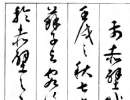 前赤壁
壬戌之秋七
蘇子與客
於赤壁之